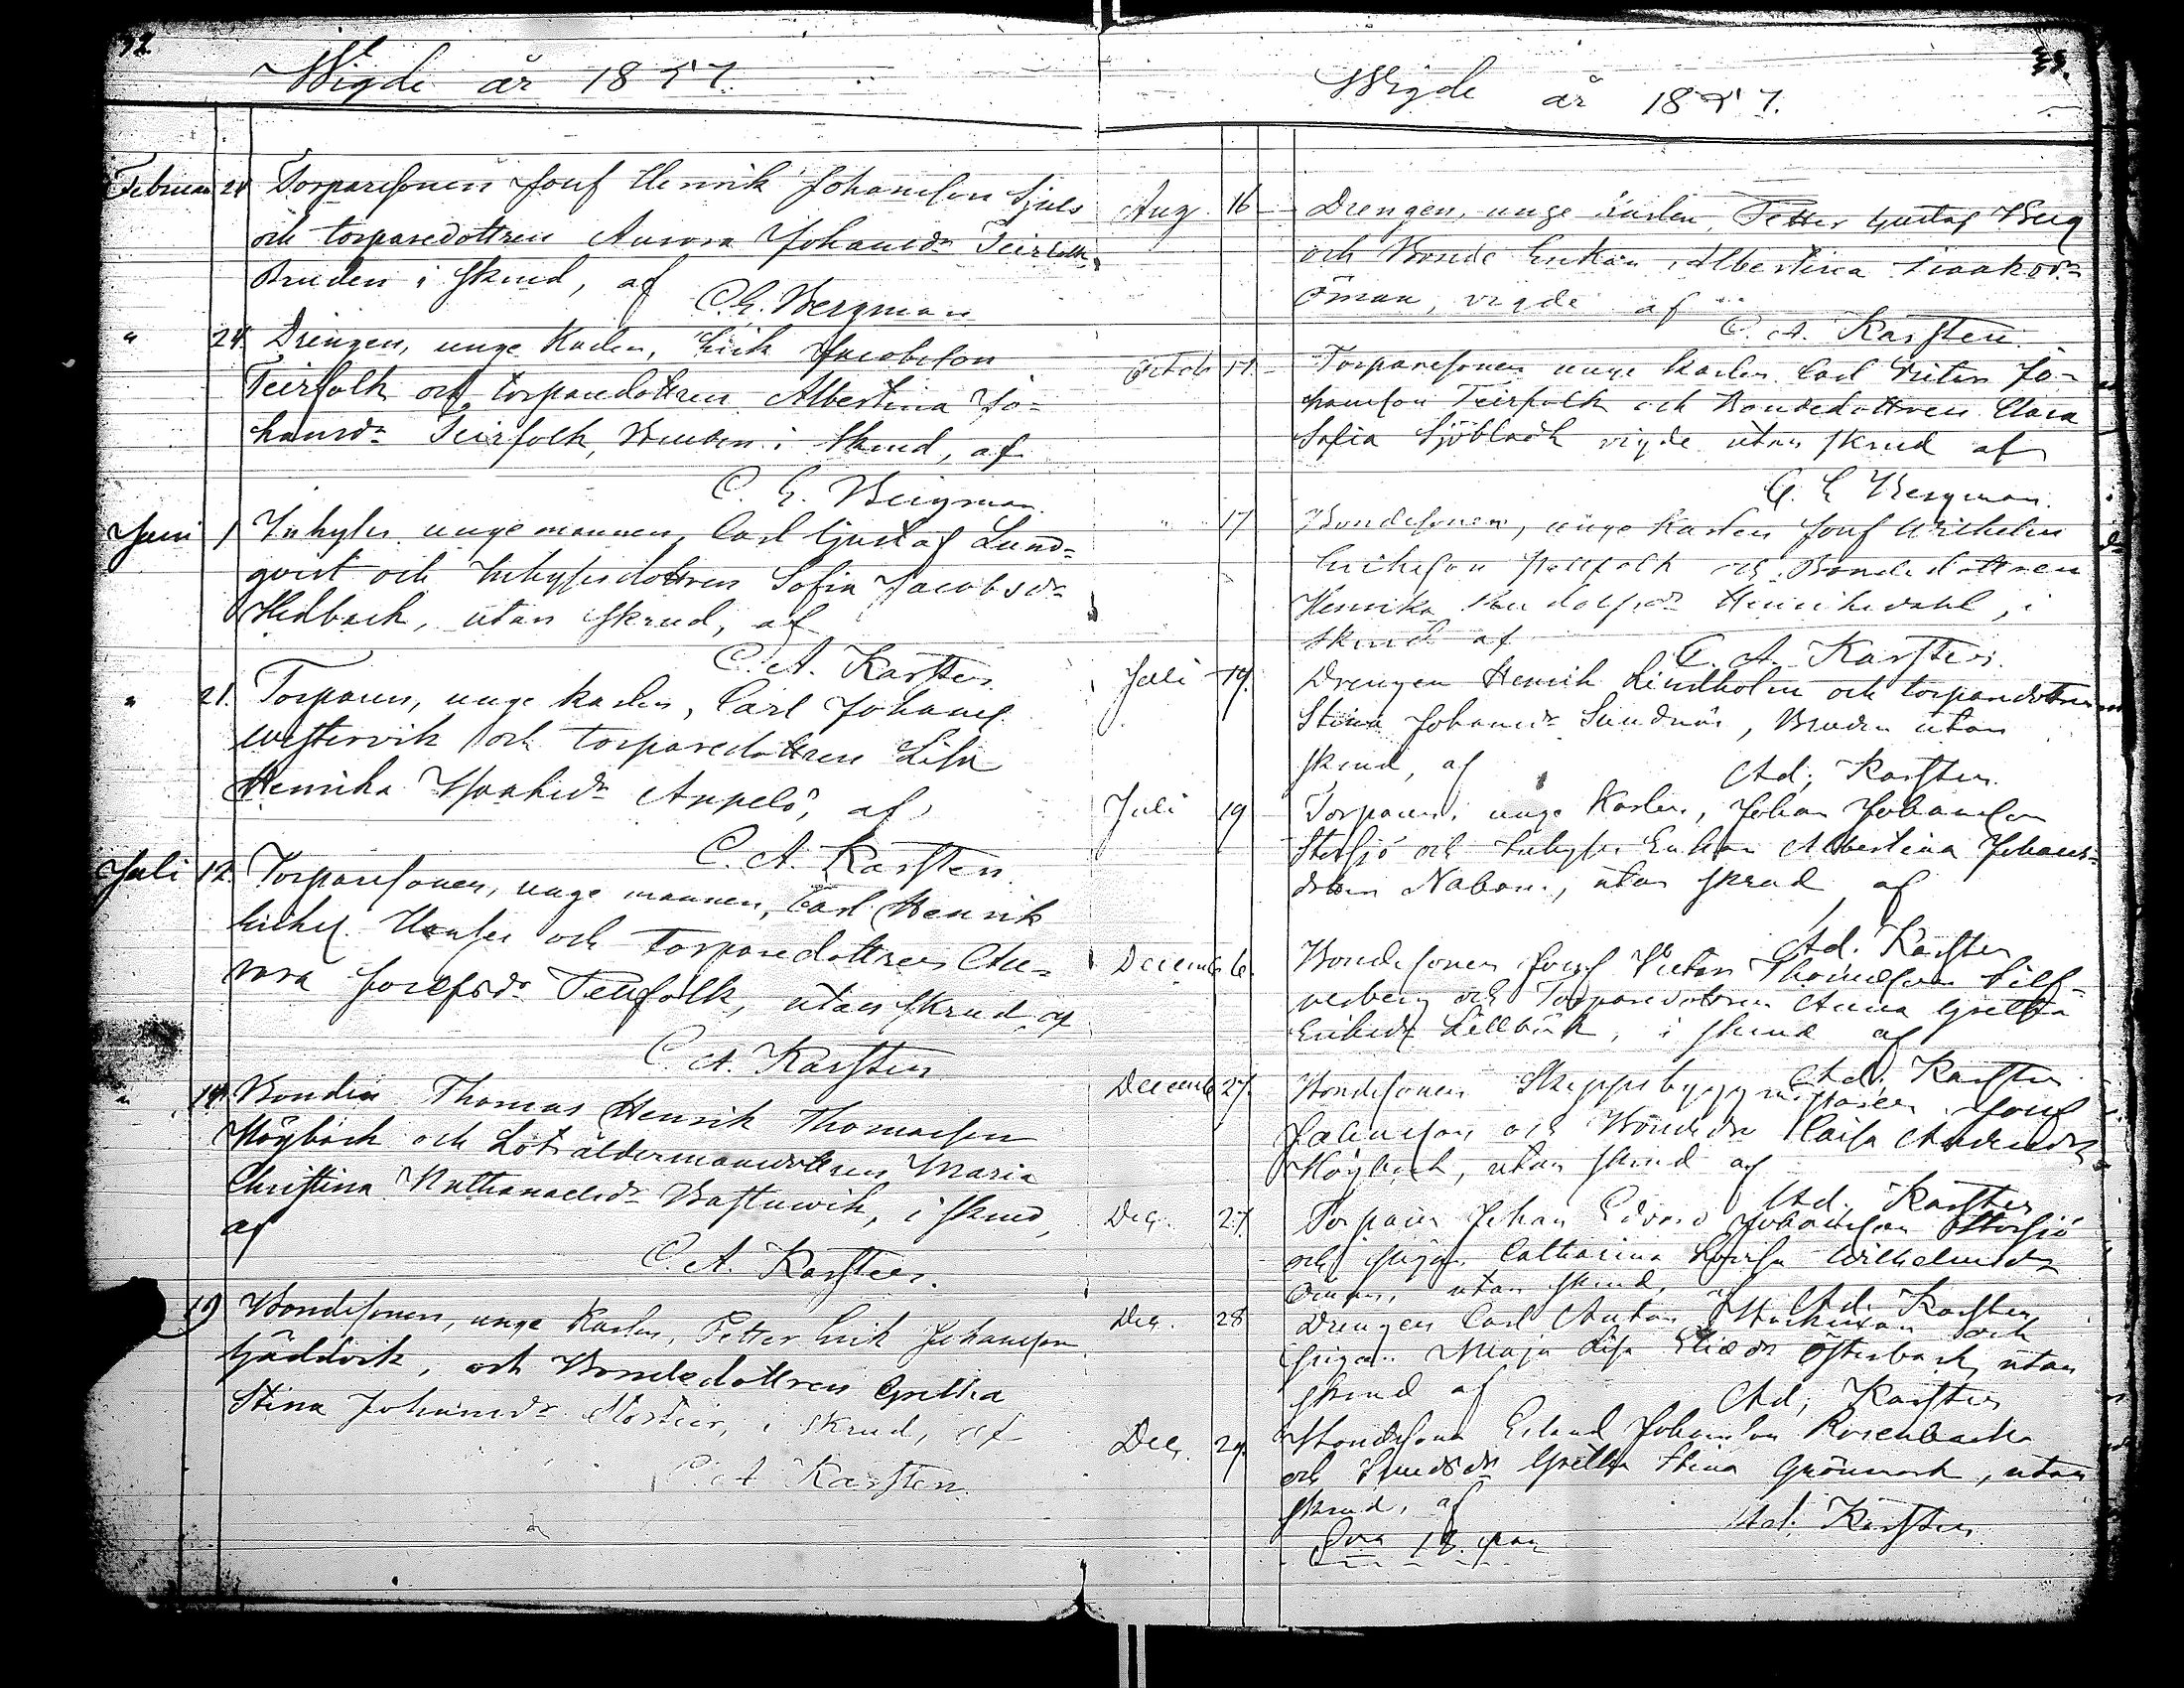 32
Wigde år 1857.
Februari 24 Torparesonen Josef Henrik Johansson Sjuls
och torparedottren Aurora Johansdr Teirfolk
Bruden i skrud, af
C. E. Bergman
" 24. Drengen, unge Karlen, Erik Jacobsson
Teirfolk och torparedottren Albertina Jo-
hansdr Teirfolk, Bruden i skrud, af
C. E. Bergman.
Juni 1 Inhyses unge mannen, Carl Gustaf Lund-
qvist och Inhysesdottren Sofia Jacobsdr
Hedback, utan skrud, af
C. A. Karsten.
" 21. Torparen, unge karlen, Carl Johans.
Westervik och torparedottren Lisa
Henrika Isaksdr Appelö, af
C. A. Karsten.
Juli 12. Torparesonen, unge mannen, Carl Henrik
Eriks. och Torparedottren Au-
rora Josefsdr Teirfolk, utan skrud, af
C. A. Karsten
" 14. Bonden Thomas Henrik Thomasson
Högback och Lotsåldermansdottren Maria
Christina Nathanaelsdr Bastuwik, i skrud,
af
C. A. Karsten.
19 Bondesonen, unge Karlen, Petter Erik Johansson
Gäddvik, och Bondedottren Gretha
Stina Johansdr Mortéer, i skrud, af
C. A. Karsten.
33.
Wigde år 1857.
Aug. 16 Drengen, unge karlen, Petter Gustaf Berg
och Bonde Enkan, Albertina Isaksdr
Öman, vigde af
C. A. Karsten.
Octob 17. Torparesonen unge karlen Carl Viktor Jo-
hansson Teirfolk och Bondedottren Clara
Sofia Sjöblad vigde utan skrud af
C. E. Bergman.
" 17 Bondesonen, unge karlen Josef Wilhelm
Eriksson och Bondedottren
Henrika Henriksdahl, i
skrud af
C. A. Karsten.
Juli 19. Drengen Henrik Lindholm och torparedottren
Stina Johansdr Sundnäs, Bruden utan
skrud, af
Ad. Karsten.
Juli 19 Torparen, unge Karlen, Johan Johansson
Storsjö och Inhyses Enkan Albertina Johans-
dotter Nabon, utan skrud af
Ad. Karsten
Decemb 6. Bondesonen Josef Victor Thomasson Silf-
verberg och Torparedottren Anna Gretha
Eriksdr Lillbäck, i skrud af
Ad. Karsten
Decemb 27. Bondesonen Skeppsbyggmästaren Josef
Johansson och Bondedr Caisa Andersdr
Högback, utan skrud af
Ad. Karsten
Dec. 27. Torparen Johan Edvard Johansson Storsjö
och pigan Catharina Lovisa Wilhelmsdr
Öman, utan skrud, af Ad. Karsten
Dec. 28 Drengen Carl Anton och
pigan Maja Lisa Eliædr Österback, utan
skrud af
Ad. Karsten
Dec. 29. Bondesonen Erland Johansson Rosenback
och Gretha Stina Grönmark, utan
skrud, af
Ad. Karsten
Sma 18. par